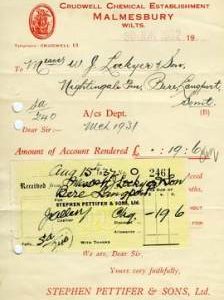 CRUDWELL CHEMICAL ESTABLISHMENT
MALMESBURY
WILTS.
Telephone: CRUDWELL 13
19
To Messrs W J Lockyer & Son
Nightingale Bere Langport
A/cs Dept.
Dear Sir, Mch 1931
Amount of Account Rendered £ : 19 : 6
Aug 15 2461
Received from Messrs Lockyer & Son
Langport
STEPHEN PETTIFER & SONS, Ltd.
Chq - 19 6
WITH THANKS
We are, Dear Sir,
Yours very faithfully,
STEPHEN PETTIFER & SONS, Ltd.